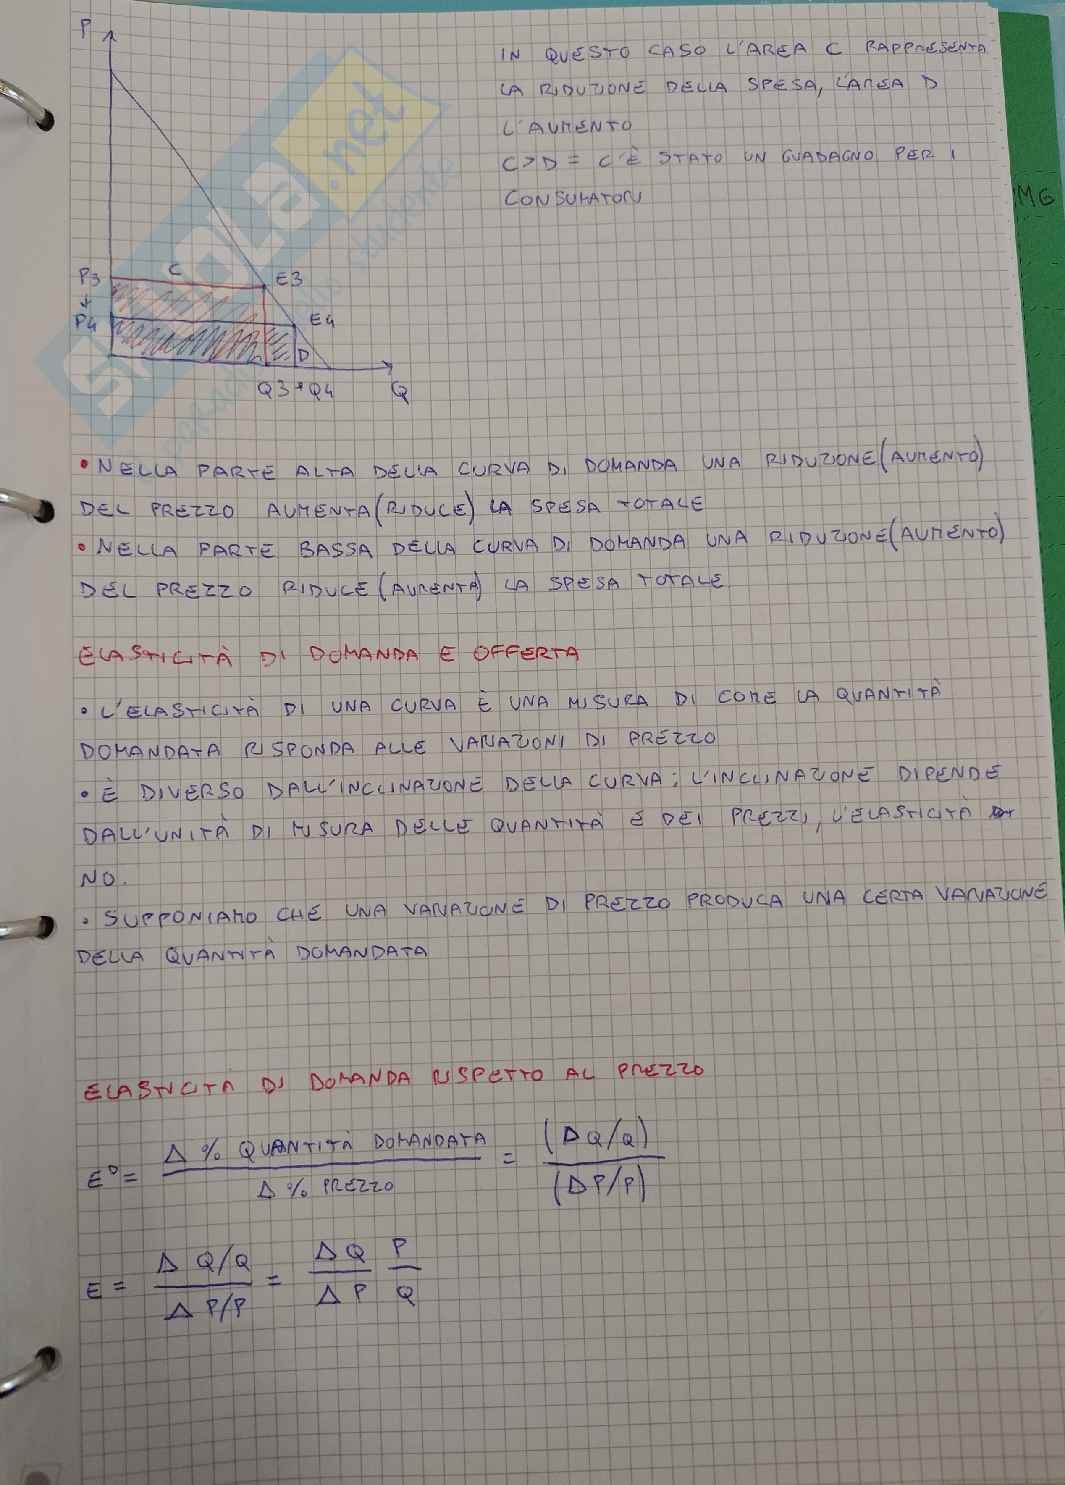 P
IN QUESTO CASO L'AREA C RAPPRESENTA
LA RIDUZIONE DELLA SPESA, L'AREA D
L'AUMENTO
C>D = C'È STATO UN GUADAGNO PER I
CONSUMATORI
MG
C
P3
E3
P4
E4
D
Q3 → Q4
Q
SKUOLA.net
• NELLA PARTE ALTA DELLA CURVA DI DOMANDA UNA RIDUZIONE (AUMENTO)
DEL PREZZO AUMENTA (RIDUCE) LA SPESA TOTALE
• NELLA PARTE BASSA DELLA CURVA DI DOMANDA UNA RIDUZIONE (AUMENTO)
DEL PREZZO RIDUCE (AUMENTA) LA SPESA TOTALE
ELASTICITÀ DI DOMANDA E OFFERTA
• L'ELASTICITÀ DI UNA CURVA È UNA MISURA DI COME LA QUANTITÀ
DOMANDATA RISPONDA ALLE VARIAZIONI DI PREZZO
• È DIVERSO DALL'INCLINAZIONE DELLA CURVA: L'INCLINAZIONE DIPENDE
DALL'UNITÀ DI MISURA DELLE QUANTITÀ E DEI PREZZI, L'ELASTICITÀ
NO.
• SUPPONIAMO CHE UNA VARIAZIONE DI PREZZO PRODUCA UNA CERTA VARIAZIONE
DELLA QUANTITÀ DOMANDATA
ELASTICITÀ DI DOMANDA RISPETTO AL PREZZO
E^D = Δ % QUANTITÀ DOMANDATA / Δ % PREZZO = (ΔQ/Q) / (ΔP/P)
E = Δ Q/Q / Δ P/P = ΔQ / ΔP P / Q